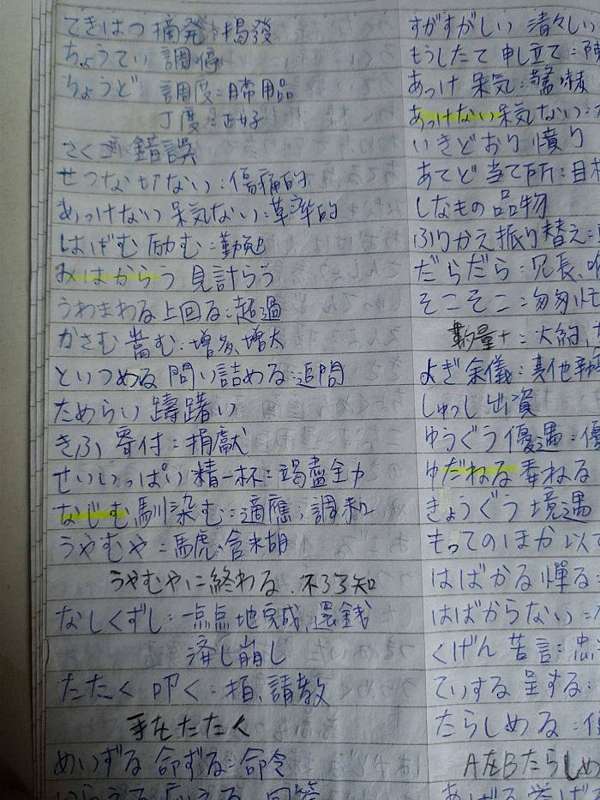 てきはつ 摘発:揭發
ちょうてい 調停
ちょうど 調度:日常用品
丁度:正好
さくご 錯誤
せつない 切ない:傷痛的
あっけない 呆気ない:草率的
はげむ 励む:勤勉
みはからう 見計らう
うわまわる 上回る:超過
かさむ 嵩む:增多、增大
といつめる 問い詰める:追問
ためらい 躊躇い
きふ 寄付:捐獻
せいいっぱい 精一杯:竭盡全力
なじむ 馴染む:適應;調和
うやむや:馬虎、含糊
うやむやに終わる.不了了知
なしくずし:一点点地完成、還錢
済し崩し
たたく 叩く:拍、請教
手をたたく
めいずる 命ずる:命令
すがすがしい 清々しい
もうしたて 申し立て:
あっけ 呆気:驚
あっけない 呆気ない:
いきどおり 憤り
あてど 当て所:目
しなもの 品物
ふりかえ 振り替え:
だらだら:冗長、
そこそこ:匆匆忙
数量+:大約、
よぎ 余儀:其他
しゅっし 出資
ゆうぐう 優遇:優
ゆだねる 委ねる
きょうぐう 境遇
もってのほか 以て
はばかる 憚る:
はばからない:
くげん 苦言:忠
ていする 呈する:
たらしめる:
AをBたらしめ